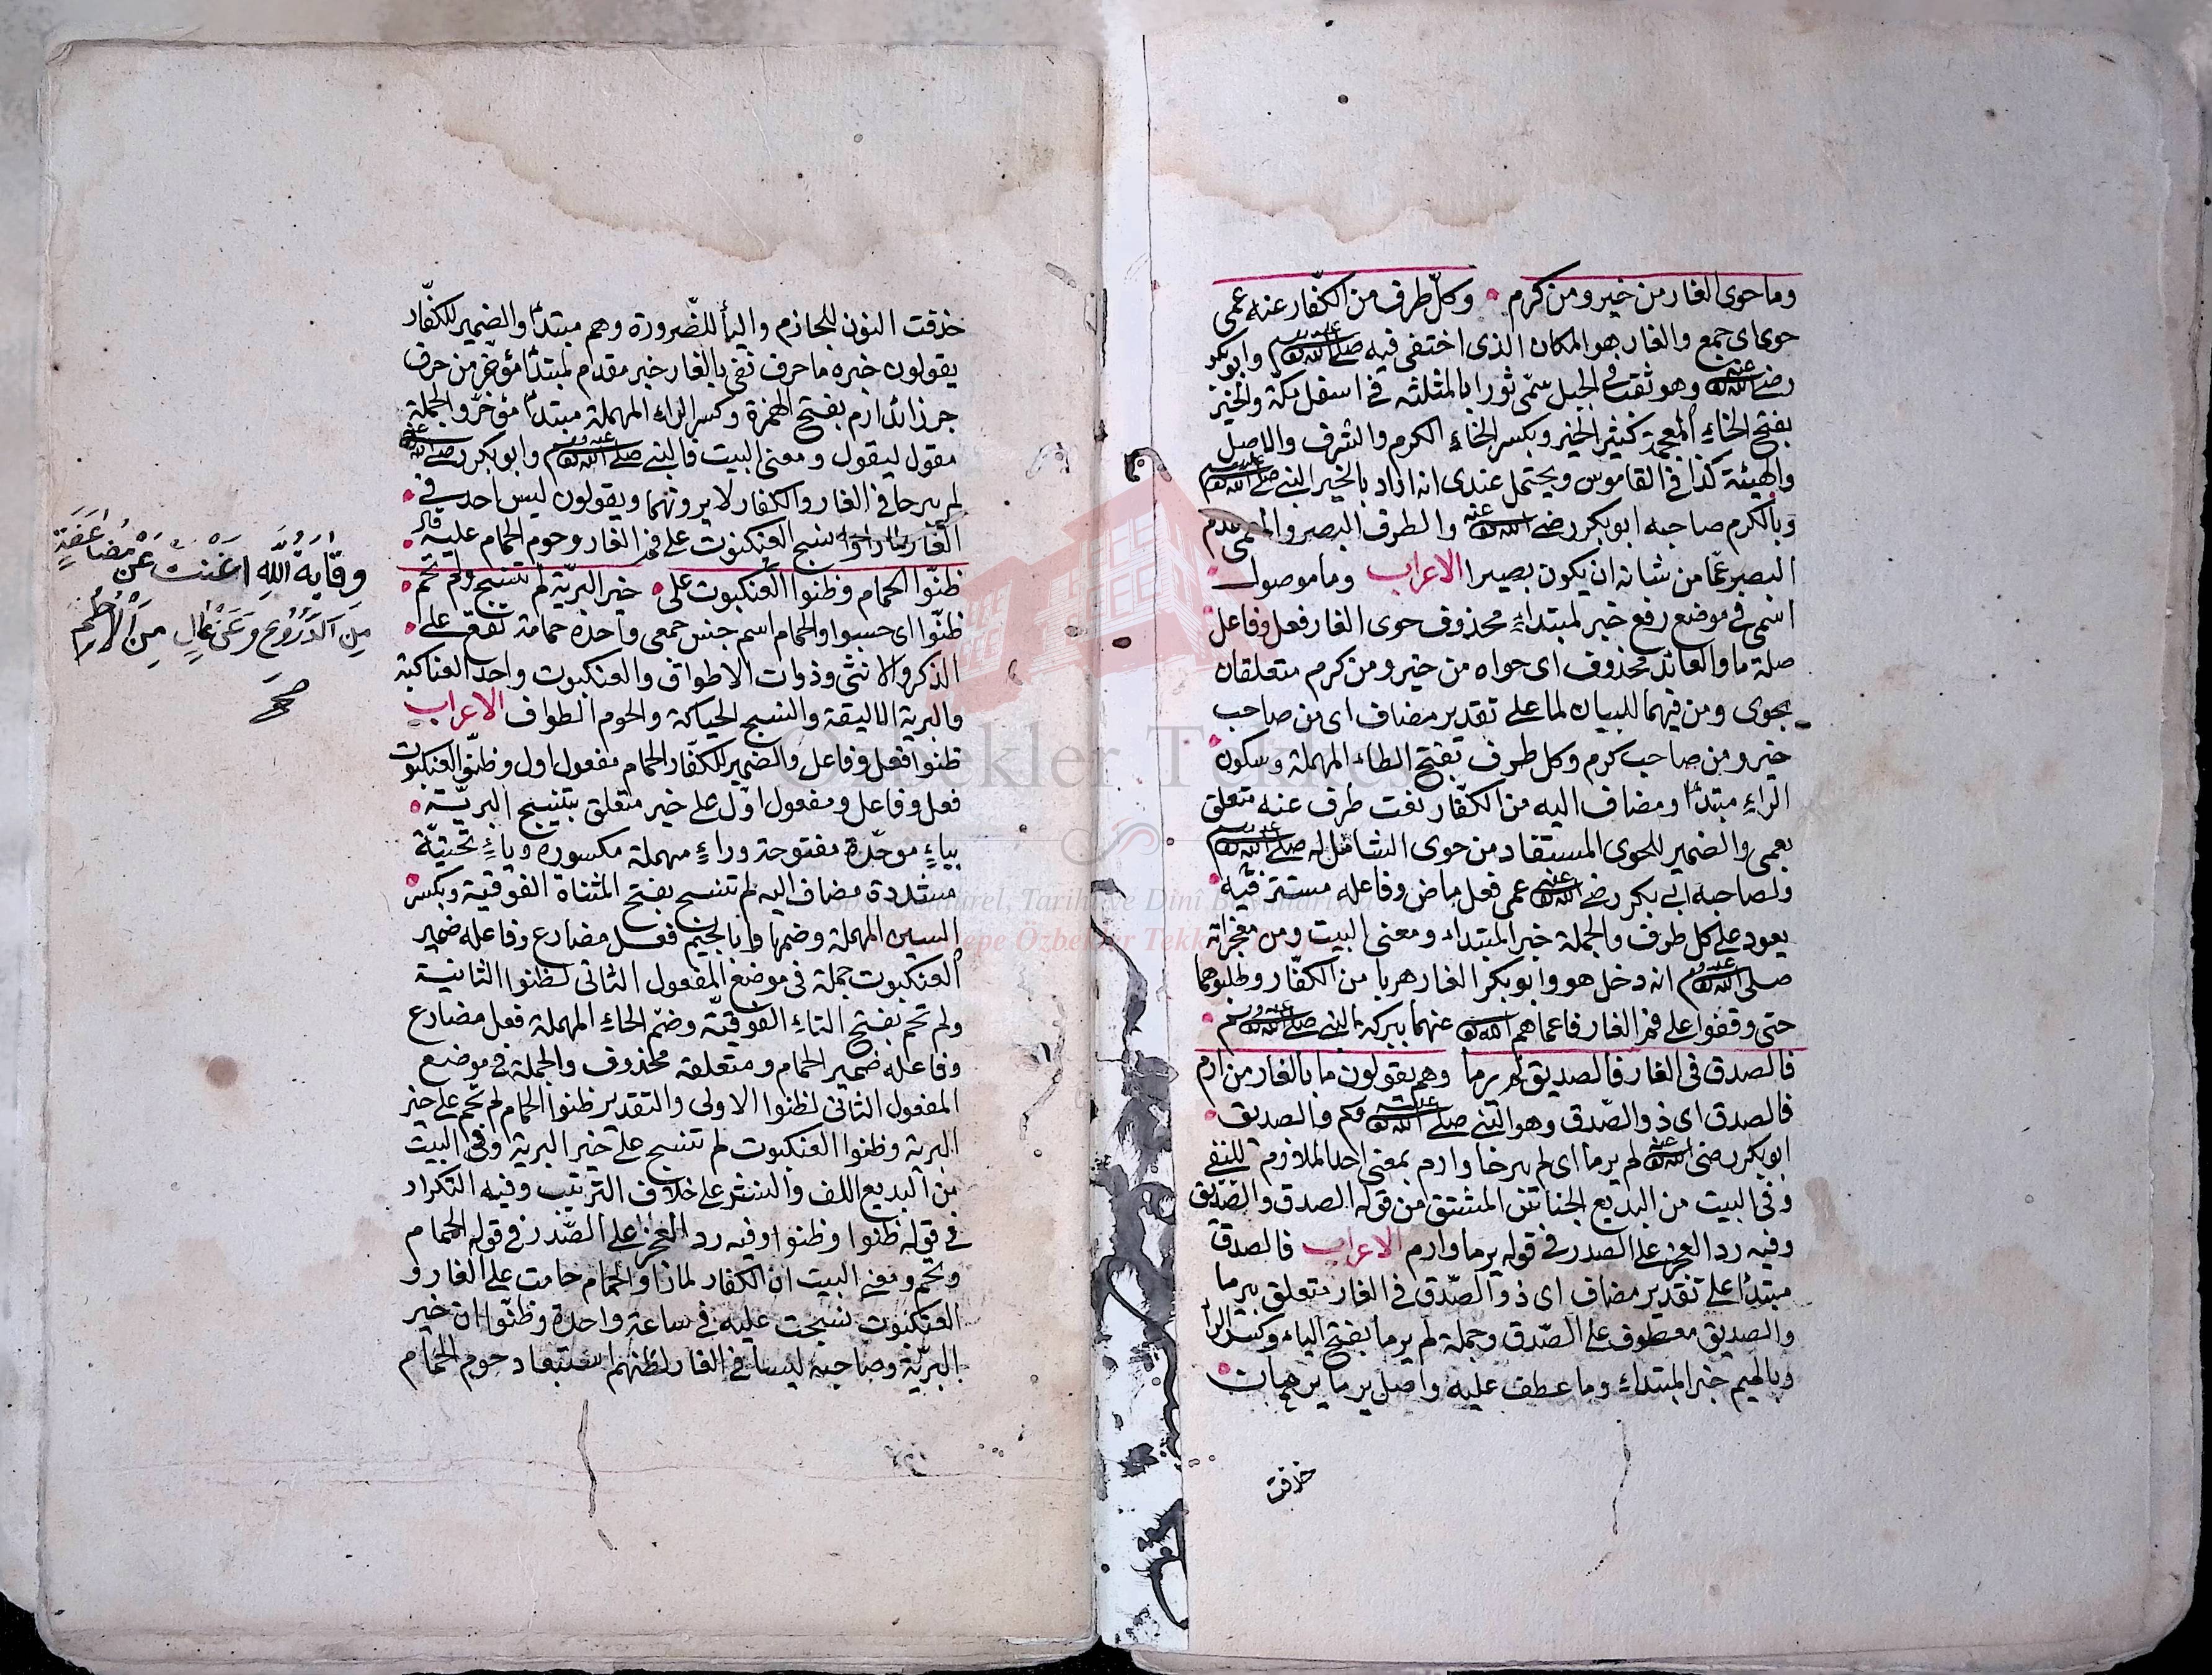 وما حوى الغار من خير ومن كرم وكل طرف من الكفار عنه عمى
حوى اى جمع والغار هو المكان الذى اختفى فيه صلى الله عليه وسلم وابو بكر
رضى الله عنه وهو ثقب فى الجبل سمى ثورا بالمثلثه فى اسفل مكة والخير
بفتح الخاء المعجمة كثير الخير وبكسر الخاء الكرم والشرف والاصل
والهيئة كذا فى القاموس ويحتمل عندى انه اراد بالخير النبى صلى الله عليه وسلم
وبالكرم صاحبه ابو بكر رضى الله عنه والطرف البصر والعمى عدم
البصر عما من شانه ان يكون بصيرا الاعراب وما موصول
اسمى فى موضع رفع خبر لمبتداء محذوف حوى الغار فعل وفاعل
صلة ما والعائد محذوف اى حواه من خير ومن كرم متعلقان
بحوى ومن فيهما للبيان لما على تقدير مضاف اى من صاحب
خير ومن صاحب كرم وكل طرف بفتح الطاء المهملة وسكون
الراء مبتدأ ومضاف اليه من الكفار نعت طرف عنه متعلق
بعمى والضمير للحوى المستفاد من حوى الشامل له صلى الله عليه وسلم
ولصاحبه ابى بكر رضى الله عنه عمى فعل ماض وفاعله مستتر فيه
يعود على كل طرف والجملة خبر المبتداء ومعنى البيت ومن معجزاته
صلى الله عليه وسلم انه دخل هو وابو بكر الغار هربا من الكفار وطلبوهما
حتى وقفوا على فم الغار فاعماهم الله عنهما ببركة النبى صلى الله عليه وسلم
فالصدق فى الغار فالصديق لم يرما وهم يقولون ما بالغار من ارم
فالصدق اى ذو الصدق وهو النبى صلى الله عليه وسلم فالصديق
ابو بكر رضى الله عنه لم يرما اى لم يبرحا وارم بمعنى احد الملازم للنفى
وفى البيت من البديع الجناس المشتق من قوله الصدق والصديق
وفيه رد العجز على الصدر فى قوله يرما وارم الاعراب فالصدق
مبتدأ على تقدير مضاف اى ذو الصدق فى الغار متعلق بيرما
والصديق معطوف على الصدق وجملة لم يرما بفتح الياء وكسر الرا
وبالميم خبر المبتداء وما عطف عليه واصل يرما يرمان
خذفت
خذفت النون للجازم واليأ للضرورة وهم مبتدأ والضمير للكفار
يقولون خبره ما حرف نفى بالغار خبر مقدم لمبتدأ مؤخر من حرف
جر زائد ارم بفتح الهمزة وكسر الراء المهملة مبتدأ مؤخر والجملة
مقول ليقول ومعنى البيت فالنبى صلى الله عليه وسلم وابو بكر رضى الله عنه
لم يبرحا فى الغار والكفار لا يرونهما ويقولون ليس احد فى
الغار لما راوا نسج العنكبوت على فم الغار وحوم الحمام عليه قال
ظنوا الحمام وظنوا العنكبوت على خير البرية لم تنسج ولم تحم
ظنوا اى حسبوا والحمام اسم جنس جمعى واحده حمامة تقع على
الذكر والانثى وذوات الاطواق والعنكبوت واحد العناكبة
والبرية الخليقة والنسج الحياكة والحوم الطواف الاعراب
ظنوا فعل وفاعل والضمير للكفار الحمام مفعول اول وظنوا العنكبوت
فعل وفاعل ومفعول اول على خير متعلق بتنسج البرية
بباء موحدة مفتوحة وراء مهملة مكسورة وياء تحتية
مشددة مضاف اليه لم تنسج بفتح المثناة الفوقية وبكسر
السين المهملة وضمها وبالجيم فعل مضارع وفاعله ضمير
العنكبوت جملة فى موضع المفعول الثانى لظنوا الثانية
ولم تحم بفتح التاء الفوقية وضم الحاء المهملة فعل مضارع
وفاعله ضمير الحمام ومتعلقه محذوف والجملة فى موضع
المفعول الثانى لظنوا الاولى والتقدير ظنوا الحمام لم تحم على خير
البرية وظنوا العنكبوت لم تنسج على خير البرية وفى البيت
من البديع اللف والنشر على خلاف الترتيب وفيه التكرار
فى قوله ظنوا وظنوا وفيه رد العجز على الصدر فى قوله الحمام
وتحم ومعنى البيت ان الكفار لما راوا الحمام حامت على الغار و
العنكبوت نسجت عليه فى ساعة واحدة وظنوا ان خير
البرية وصاحبه ليسا فى الغار لظنهم استبعاد حوم الحمام
وقاية الله اغنت عن مضاعفة
من الدروع وعن عال من الاطم
صح